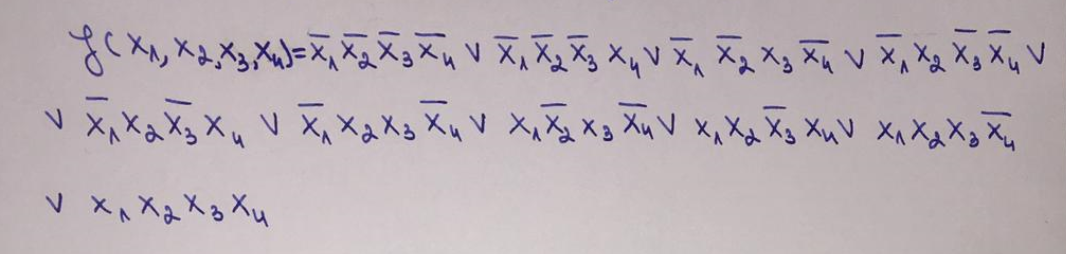 f(x₁,x₂,x₃,x₄)=x̅₁x̅₂x̅₃x̅₄ ∨ x̅₁x̅₂x̅₃x₄ ∨ x̅₁x̅₂x₃x̅₄ ∨ x̅₁x₂x̅₃x̅₄ ∨
∨ x̅₁x₂x̅₃x₄ ∨ x̅₁x₂x₃x̅₄ ∨ x₁x̅₂x₃x̅₄ ∨ x₁x₂x̅₃x₄ ∨ x₁x₂x₃x̅₄
∨ x₁x₂x₃x₄